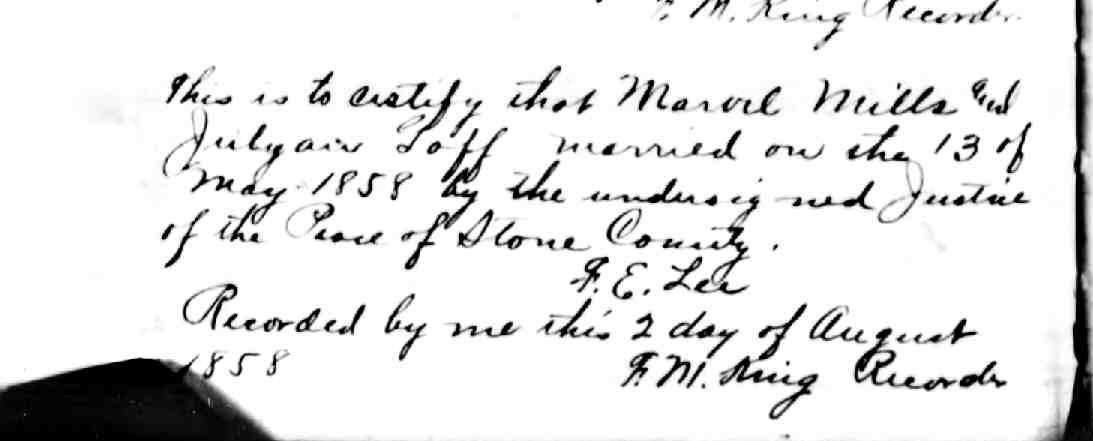 F. M. King Recorder
This is to certify that Marvel Mills and
Julyain Goff married on the 13 of
May 1858 by the undersigned Justice
of the Peace of Stone County.
F. E. Lee
Recorded by me this 2 day of August
1858 F. M. King Recorder